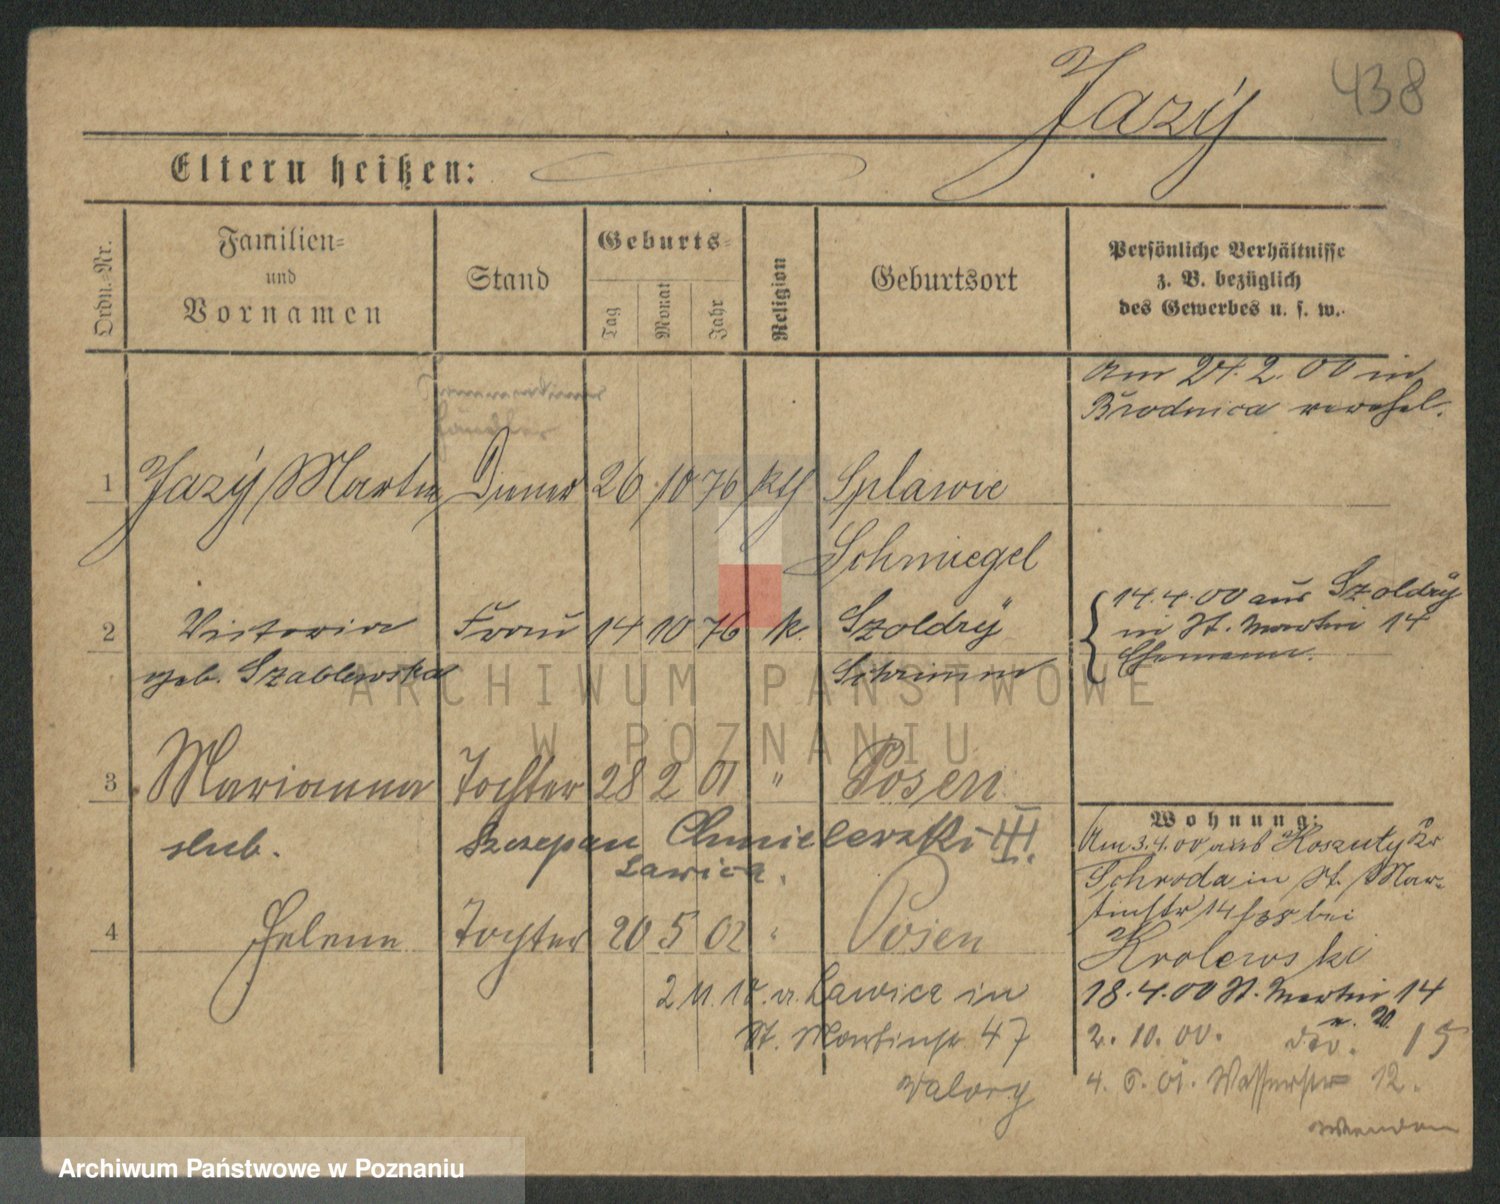 438
Jazÿ
Eltern heißen:
Ordn.-Nr.
Familien-
und
Vornamen
Stand
Geburts-
Tag
Monat
Jahr
Religion
Geburtsort
Persönliche Verhältnisse
z. B. bezüglich
des Gewerbes u. s. w.
Am 24. 2. 00 in
Brodnica verehel.
1 Jazÿ Martin Diener 26 10 76 kth Splawie
Schmiegel
2 Victoria Frau 14 10 76 k. Szoldrÿ
geb. Szablewska Schrimm
14.4.00 aus Szoldrÿ
in St. Martin 14
Ehemann.
3 Marianna Tochter 28 2 01 " Posen
slub. Szczepan Chmielewski III.
Lawica.
4 Helene Tochter 20 5 02 " Posen
2 11. 18. v. Lawica in
St. Martinstr 47
Wohnung:
Am 3.4.00 aus Koszuty Kr
Schroda in St. Mar-
tinstr 14 bei
Krolewski
18.4.00 St. Martin 14
2. 10. 00. 15
4. 6. 01. Wasserstr 12.
wenden
ARCHIWUM PAŃSTWOWE
W POZNANIU
Archiwum Państwowe w Poznaniu